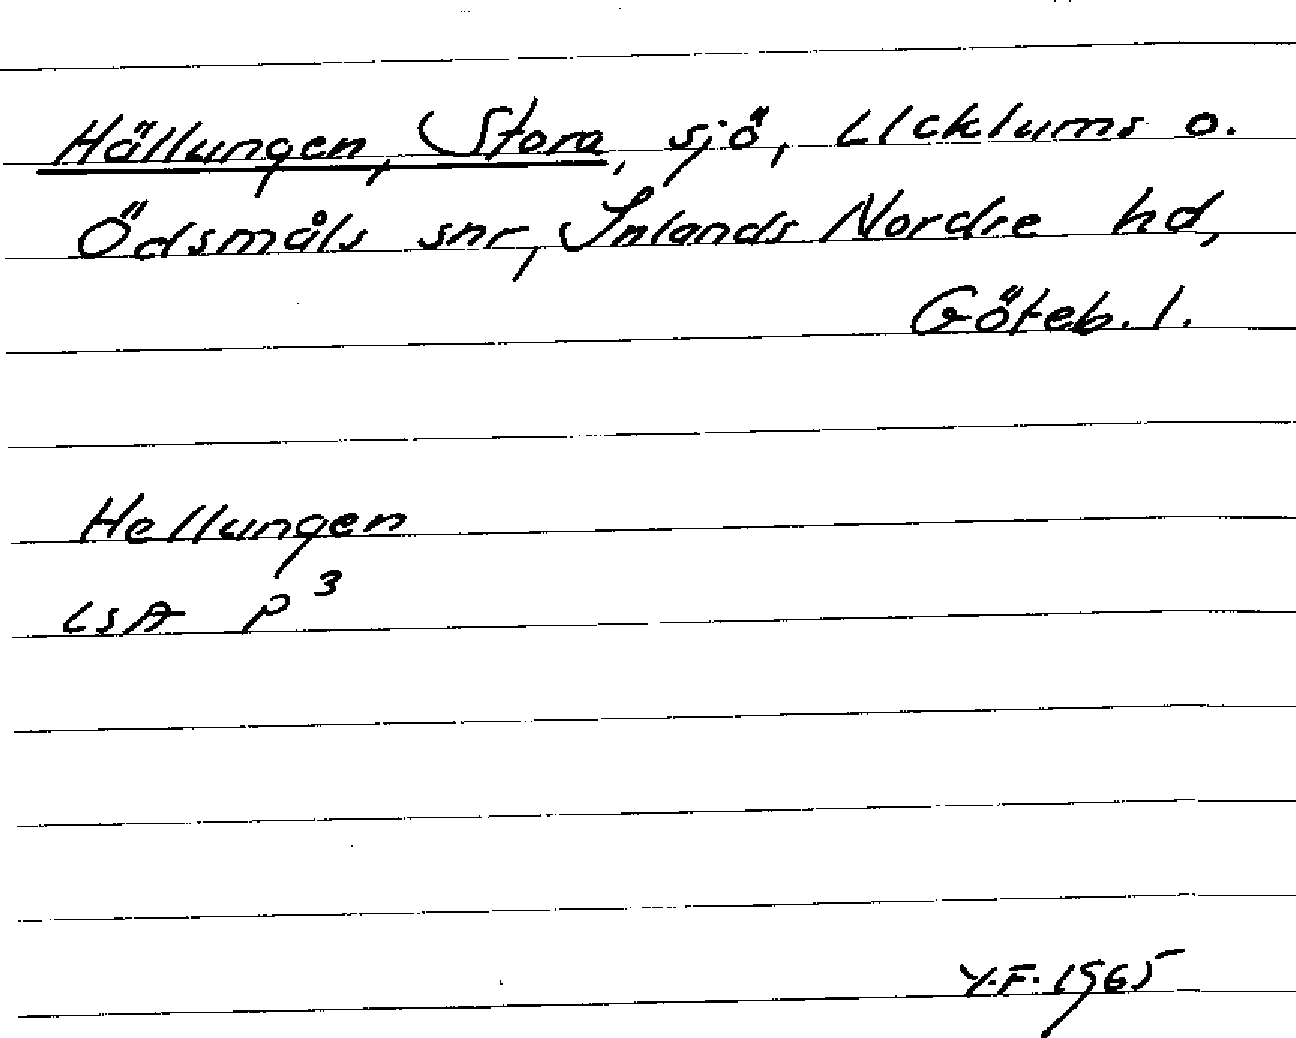 Hällungen, Stora, sjö, Ucklums o.
Ödsmåls snr, Inlands Nordre hd,
Göteb. l.
Hellungen
LSA P3
Y.F. 1965